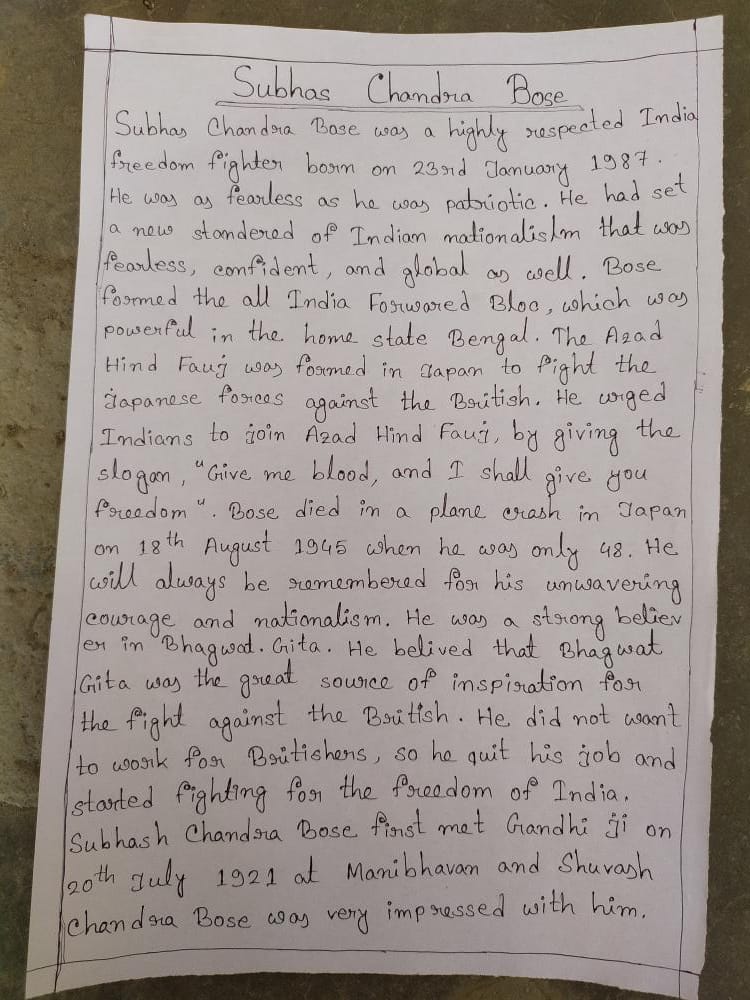 Subhas Chandra Bose
Subhas Chandra Bose was a highly respected India
freedom fighter born on 23rd January 1987.
He was as fearless as he was patriotic. He had set
a new standered of Indian nationalism that was
fearless, confident, and global as well. Bose
formed the all India Forwared Bloc, which was
powerful in the home state Bengal. The Azad
Hind Fauj was formed in Japan to fight the
japanese forces against the British. He urged
Indians to join Azad Hind Fauj, by giving the
slogan, "Give me blood, and I shall give you
freedom". Bose died in a plane crash in Japan
on 18th August 1945 when he was only 48. He
will always be remembered for his unwavering
courage and nationalism. He was a strong believ
er in Bhagwat. Gita. He belived that Bhagwat
Gita was the great source of inspiration for
the fight against the British. He did not want
to work for Britishers, so he quit his job and
started fighting for the freedom of India.
Subhash Chandra Bose first met Gandhi ji on
20th July 1921 at Manibhavan and Shuvash
Chandra Bose was very impressed with him.